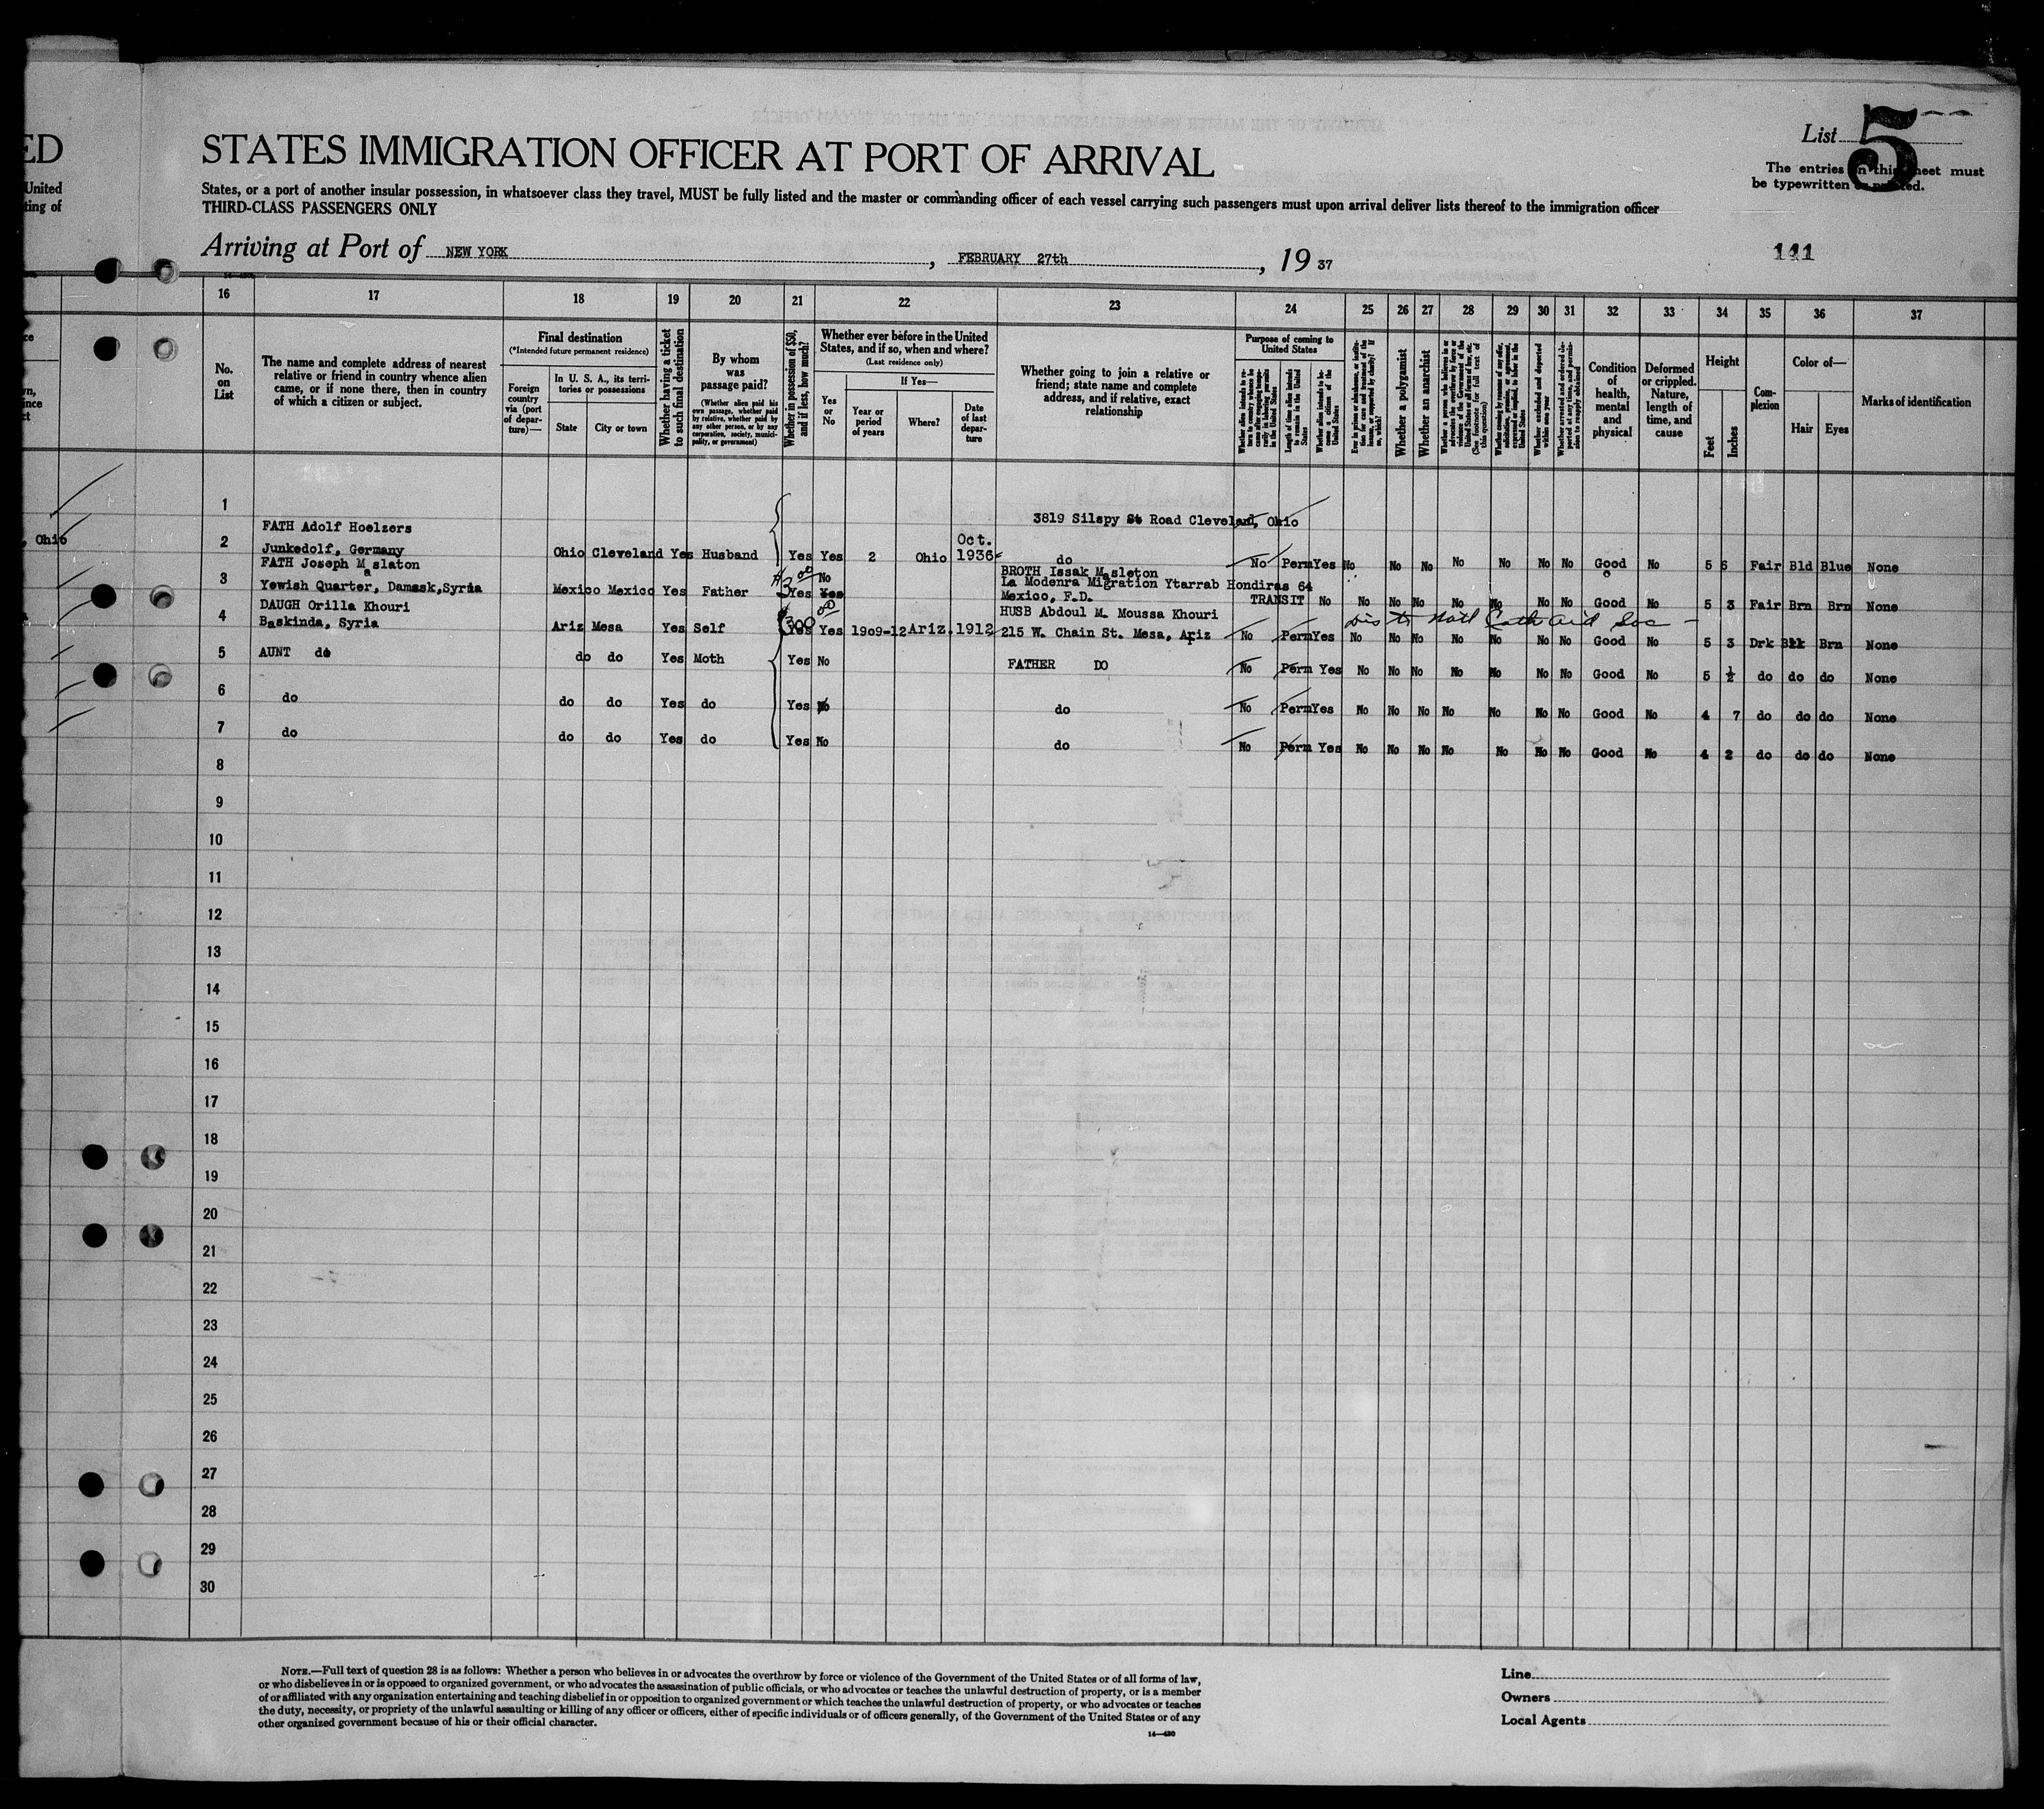 ED
United
ting of
STATES IMMIGRATION OFFICER AT PORT OF ARRIVAL
List 5
The entries on this sheet must
be typewritten or printed.
States, or a port of another insular possession, in whatsoever class they travel, MUST be fully listed and the master or commanding officer of each vessel carrying such passengers must upon arrival deliver lists thereof to the immigration officer
THIRD-CLASS PASSENGERS ONLY
Arriving at Port of NEW YORK, FEBRUARY 27th, 19 37
141
16 17 18 19 20 21 22 23 24 25 26 27 28 29 30 31 32 33 34 35 36 37
No. on List
The name and complete address of nearest relative or friend in country whence alien came, or if none there, then in country of which a citizen or subject.
Final destination
(*Intended future permanent residence)
Foreign country via (port of departure)—
In U. S. A., its territories or possessions
State
City or town
Whether having a ticket to such final destination
By whom was passage paid?
(Whether alien paid his own passage, whether paid by relative, whether paid by any other person, or by any corporation, society, municipality, or government)
Whether in possession of $50, and if less, how much?
Whether ever before in the United States, and if so, when and where?
(Last residence only)
Yes or No
If Yes—
Year or period of years
Where?
Date of last departure
Whether going to join a relative or friend; state name and complete address, and if relative, exact relationship
Purpose of coming to United States
Length of time alien intends to remain in the United States
Whether alien intends to become a citizen of the United States
Whether a polygamist
Whether an anarchist
(See footnote for full text of this question)
Whether excluded and deported within one year
Condition of health, mental and physical
Deformed or crippled. Nature, length of time, and cause
Height
Feet
Inches
Complexion
Color of—
Hair
Eyes
Marks of identification
1
3819 Silspy St Road Cleveland, Ohio
, Ohio
FATH Adolf Hoelzers
2 Junkedolf, Germany Ohio Cleveland Yes Husband Yes Yes 2 Ohio Oct. 1936 do No Perm Yes No No No No No No No Good No 5 6 Fair Bld Blue None
FATH Joseph Maslaton BROTH Issak Masleton
3 Yewish Quarter, Damask,Syria Mexico Mexico Yes Father $3 00 Yes No Yes La Modenra Migration Ytarrab Hondiras 64
Mexico, F.D. TRANSIT No No No No No No No No Good No 5 3 Fair Brn Brn None
DAUGH Orilla Khouri HUSB Abdoul M. Moussa Khouri
4 Baskinda, Syria Ariz Mesa Yes Self $300 00 Yes Yes 1909-12 Ariz. 1912 215 W. Chain St. Mesa, Ariz No Perm Yes No No No No No No No Good No 5 3 Drk Blk Brn None
Dis to Natl Cath aid Soc -
5 AUNT do do do Yes Moth Yes No FATHER DO No Perm Yes No No No No No No No Good No 5 ½ do do do None
6 do do do Yes do Yes No do No Perm Yes No No No No No No No Good No 4 7 do do do None
7 do do do Yes do Yes No do No Perm Yes No No No No No No No Good No 4 2 do do do None
8
9
10
11
12
13
14
15
16
17
18
19
20
21
22
23
24
25
26
27
28
29
30
NOTE.—Full text of question 28 is as follows: Whether a person who believes in or advocates the overthrow by force or violence of the Government of the United States or of all forms of law,
or who disbelieves in or is opposed to organized government, or who advocates the assassination of public officials, or who advocates or teaches the unlawful destruction of property, or is a member
of or affiliated with any organization entertaining and teaching disbelief in or opposition to organized government or which teaches the unlawful destruction of property, or who advocates or teaches
the duty, necessity, or propriety of the unlawful assaulting or killing of any officer or officers, either of specific individuals or of officers generally, of the Government of the United States or of any
other organized government because of his or their official character.
14—430
Line
Owners
Local Agents